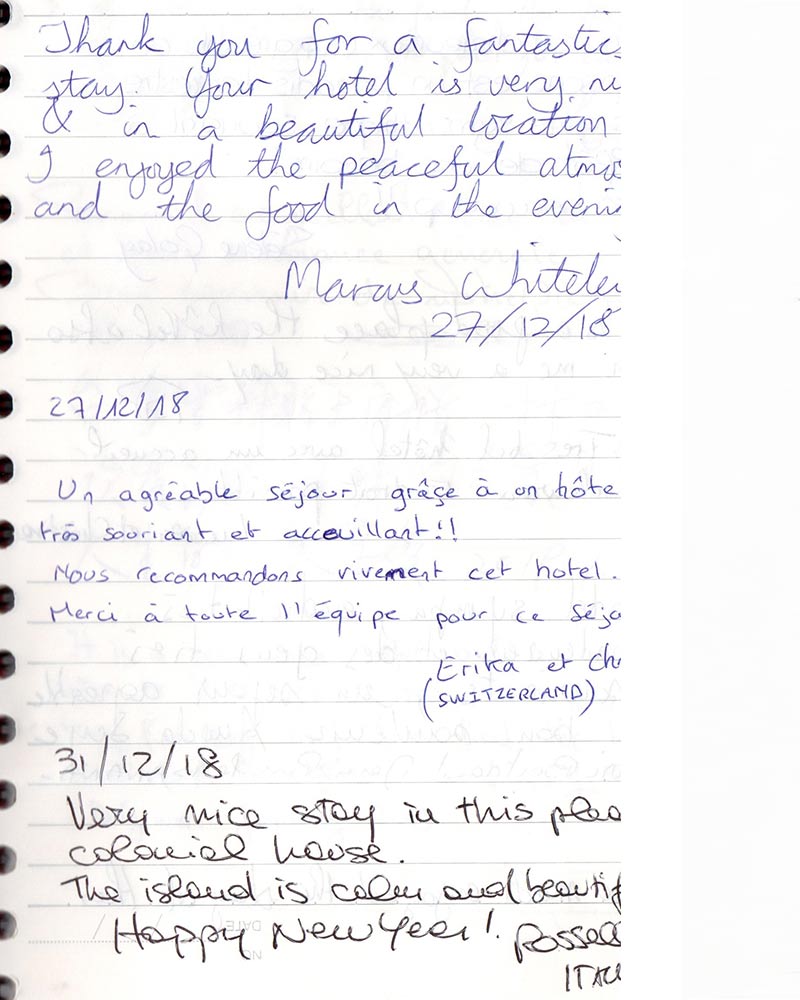 Thank you for a fantastic
stay. Your hotel is very
& in a beautiful location
I enjoyed the peaceful
and the food in the
Marcus
27/12/18
27/12/18
Un agréable séjour grâce à un hôte
très souriant et accueillant!!
Nous recommandons vivement cet hotel.
Merci à toute l'équipe pour ce
Erika et
(SWITZERLAND)
31/12/18
Very nice stay in this
colonial house.
The island is calm and
Happy New Year!